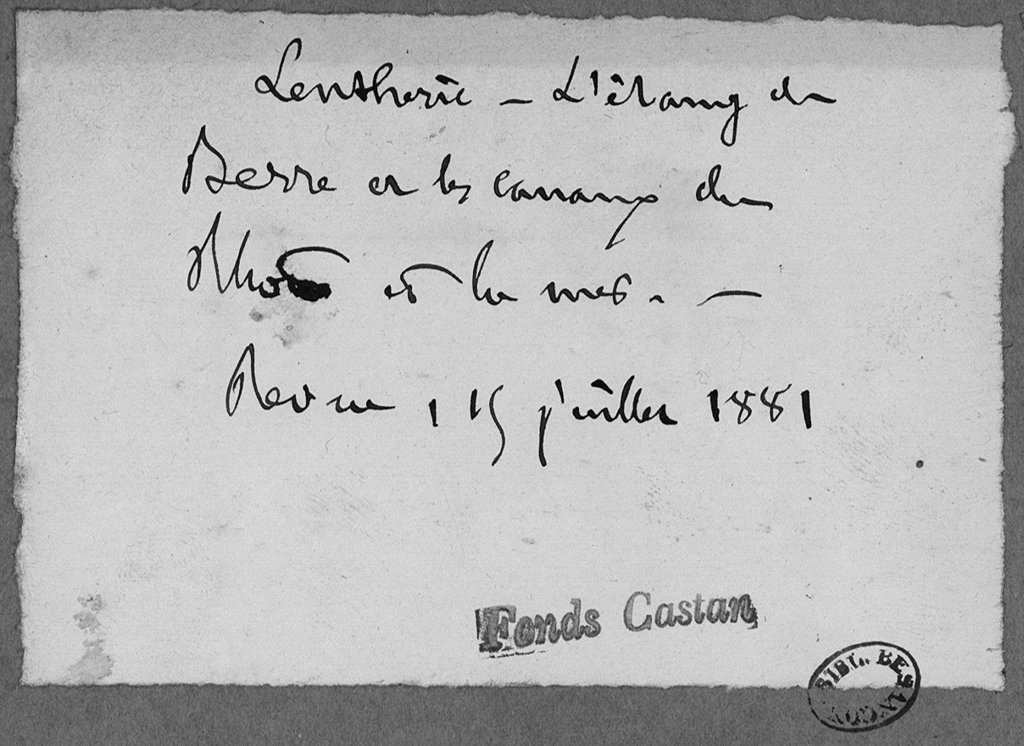 Lenthéric – L'étang de
Berre et les canaux du
Rhône et la mer. –
Revue, 15 juillet 1881
Fonds Castan
BIBL. BESANCON